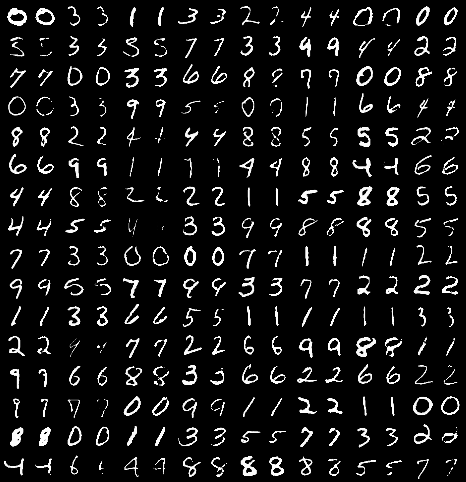 0 0 3 3 1 1 3 3 2 2 4 4 0 0 0 0
5 5 3 3 5 5 7 7 3 3 9 9 4 4 2 2
7 7 0 0 3 3 6 6 8 7 7 0 0 8 8
0 0 3 3 9 9 5 5 0 0 1 1 6 6 4 4
8 8 2 2 4 4 4 8 8 5 5 5 5 2 2
6 6 9 9 1 1 1 1 4 4 8 8 4 4 6 6
4 4 8 8 2 2 2 2 1 1 5 5 8 8 5 5
4 4 5 5 4 3 3 9 9 8 8 8 8 5 5
7 7 3 3 0 0 0 0 7 7 1 1 1 1 2 2
9 9 5 5 7 7 9 9 3 3 7 7 2 2 2 2
1 1 3 3 6 6 5 5 1 1 1 1 1 1 3 3
2 2 9 9 7 7 2 2 6 6 9 9 8 8 1 1
9 9 6 6 8 8 3 3 6 6 2 2 6 6 2 2
9 9 7 7 0 0 9 9 1 1 2 2 1 1 0 0
8 8 0 0 1 1 3 3 5 5 7 7 3 3 2 2
4 4 6 4 9 8 8 8 8 8 8 5 5 7 7